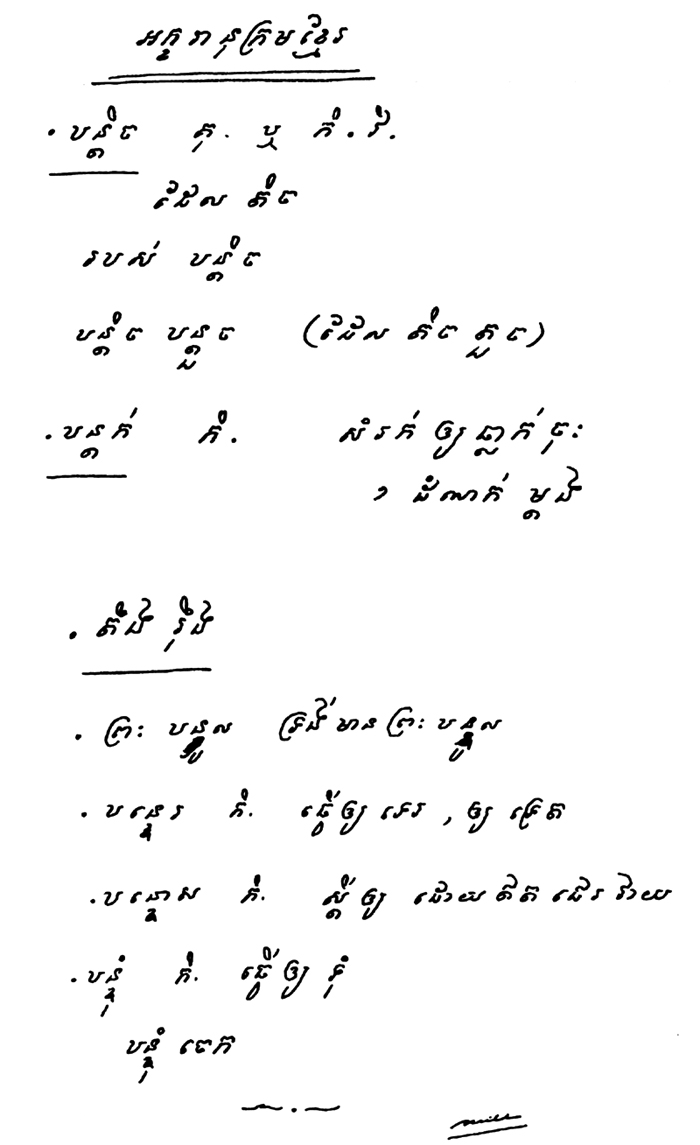 អក្ខរានុក្រមខ្មែរ
. បន្តិច គុ. ឬ កិ. វិ.
ដែល តិច
របស់ បន្តិច
បន្តិច បន្តួច (ដែល តិច តួច)
. បន្តក់ កិ. សំរក់ ឲ្យ ធ្លាក់ ចុះ
១ ដំណក់ ម្តង
. តឹង រ៉ឹង
. ព្រះ បន្ទូល ទ្រង់ មាន ព្រះ បន្ទូល
. បន្ទេរ កិ. ធ្វើ ឲ្យ ទេរ , ឲ្យ ទ្រេត
. បន្ទោស កិ. ស្តី ឲ្យ ដោយ ឥត ជេរ វាយ
. បន្ទុំ កិ. ធ្វើ ឲ្យ ទុំ
បន្ទុំ ចេក